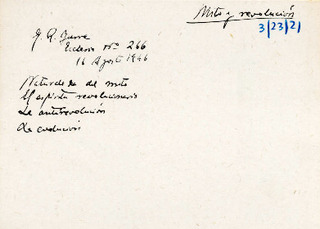 Mito y revolución
3/23/21
Ecclesia nº 266
16 Agosto 1946
Naturaleza del mito
El espíritu revolucionario
La antirevolución
La evolución